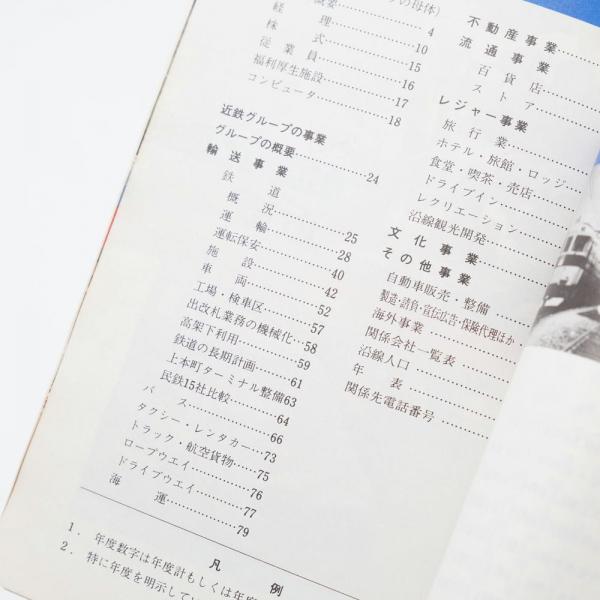 の母体)
概要……4
経理……10
株式……15
従業員……16
福利厚生施設……17
コンピュータ……18
近鉄グループの事業
グループの概要……24
輸送事業
鉄道
概況……25
運輸……28
運転保安……40
施設……42
車両……52
工場・検車区……57
出改札業務の機械化…58
高架下利用……59
鉄道の長期計画……61
上本町ターミナル整備63
民鉄15社比較……64
バス……66
タクシー・レンタカー…73
トラック・航空貨物……75
ロープウエイ……76
ドライブウエイ……77
海運……79
不動産事業……
流通事業
百貨店……
ストア……
レジャー事業
旅行業……
ホテル・旅館・ロッジ
食堂・喫茶・売店……
ドライブイン……
レクリエーション……
沿線観光開発……
文化事業……
その他事業
自動車販売・整備
製造・請負・宣伝広告・保険代理ほか
海外事業……
関係会社一覧表……
沿線人口……
年表……
関係先電話番号……
凡例
1. 年度数字は年度計もしくは年度
2. 特に年度を明示してい